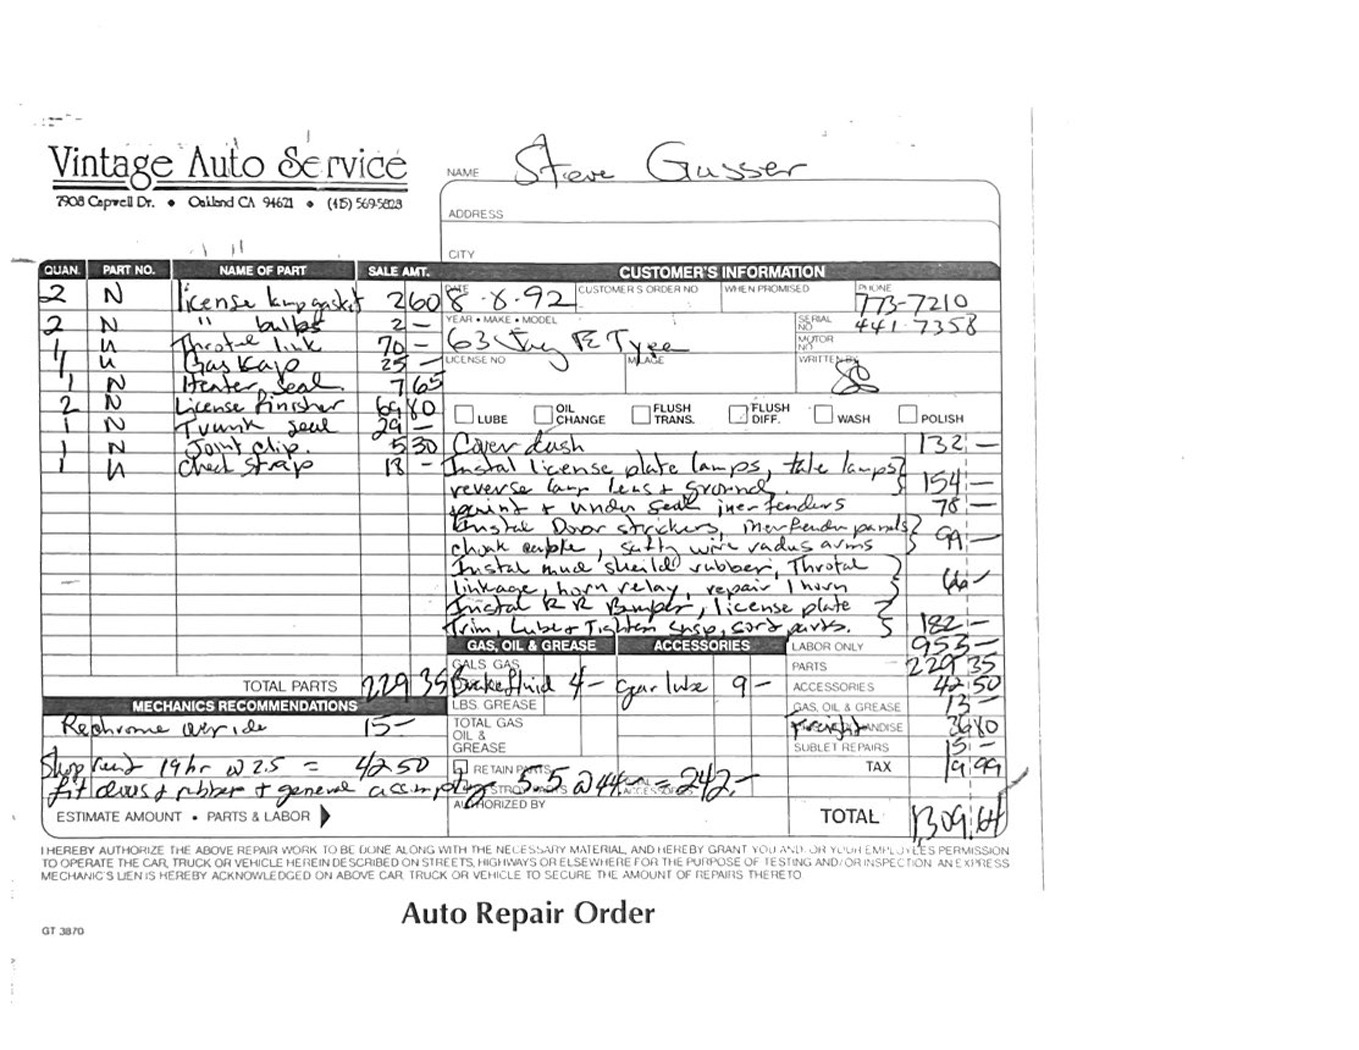 Vintage Auto Service
7908 Capwell Dr. • Oakland CA 94621 • (415) 569-5828
NAME Steve Gusser
ADDRESS
CITY
QUAN. PART NO. NAME OF PART SALE AMT. CUSTOMER'S INFORMATION
DATE 8-8-92 CUSTOMER'S ORDER NO WHEN PROMISED PHONE 773-7210
SERIAL NO 441-7358
YEAR • MAKE • MODEL 63 Jag E Type MOTOR NO.
LICENSE NO MILAGE WRITTEN BY
2 N license lamp gasket 2 60
2 N " bulbs 2 —
1 N Throtel link 70 —
1 N Gas Kap 25 —
1 N Heater seal. 7 65
2 N License finisher 69 80
1 N Trunk seal 29 —
1 N Joint clip. 5 30
1 N Check strap 18 —
LUBE OIL CHANGE FLUSH TRANS. FLUSH DIFF. WASH POLISH
Cover dash 132 —
Instal license plate lamps, tale lamps
reverse lamp lens + ground. 154 —
paint + under seal iner fenders 78 —
Instal Door strickers, inerfender panels
choak cable, safty wire radus arms 99 —
Instal mud sheild rubber, Throtal
linkage, horn relay, repair 1 horn 66 —
Instal R R Bumper, license plate
Trim, Lube + Tighten susp, sort parts. 182 —
GAS, OIL & GREASE ACCESSORIES LABOR ONLY 953 —
GALS GAS PARTS 229 35
TOTAL PARTS 229 35 Brakefluid 4 — Gear lube 9 — ACCESSORIES 42 50
MECHANICS RECOMMENDATIONS LBS. GREASE GAS, OIL & GREASE 13 —
Rechrome overide 15 — TOTAL GAS OIL & GREASE Freight 36 80
SUBLET REPAIRS 15 —
Shop rent 19 hr @ 2.5 = 42 50 RETAIN PARTS TAX 19.99
fit doors + rubber + general 5.5 @ 44 — = 242 —
ESTIMATE AMOUNT • PARTS & LABOR AUTHORIZED BY TOTAL 1309.64
I HEREBY AUTHORIZE THE ABOVE REPAIR WORK TO BE DONE ALONG WITH THE NECESSARY MATERIAL, AND HEREBY GRANT YOU AND/OR YOUR EMPLOYEES PERMISSION
TO OPERATE THE CAR, TRUCK OR VEHICLE HEREIN DESCRIBED ON STREETS, HIGHWAYS OR ELSEWHERE FOR THE PURPOSE OF TESTING AND/OR INSPECTION AN EXPRESS
MECHANIC'S LIEN IS HEREBY ACKNOWLEDGED ON ABOVE CAR TRUCK OR VEHICLE TO SECURE THE AMOUNT OF REPAIRS THERETO
Auto Repair Order
GT 3870